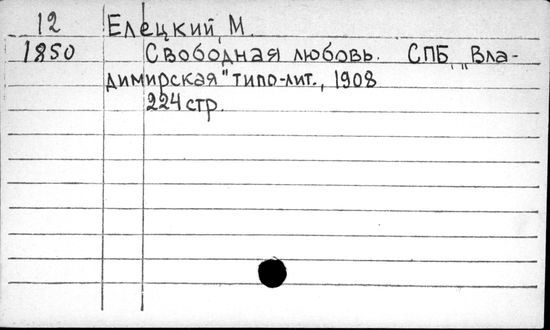 12 Елецкий, М.
1850 Свободная любовь. СПБ, "Вла-
димирская" типо-лит., 1908
224 стр.